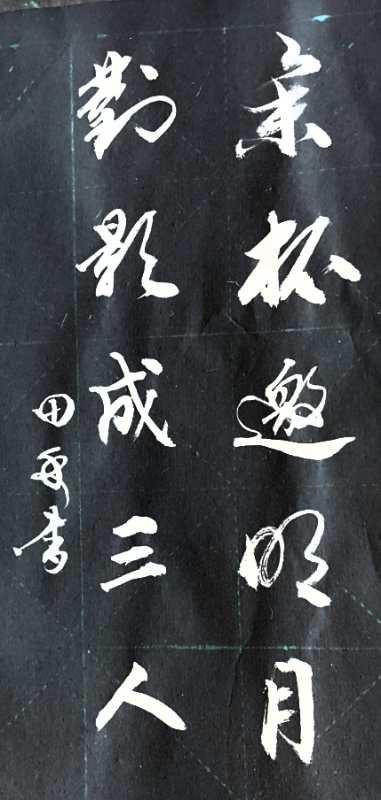 举杯邀明月
對影成三人
田 書